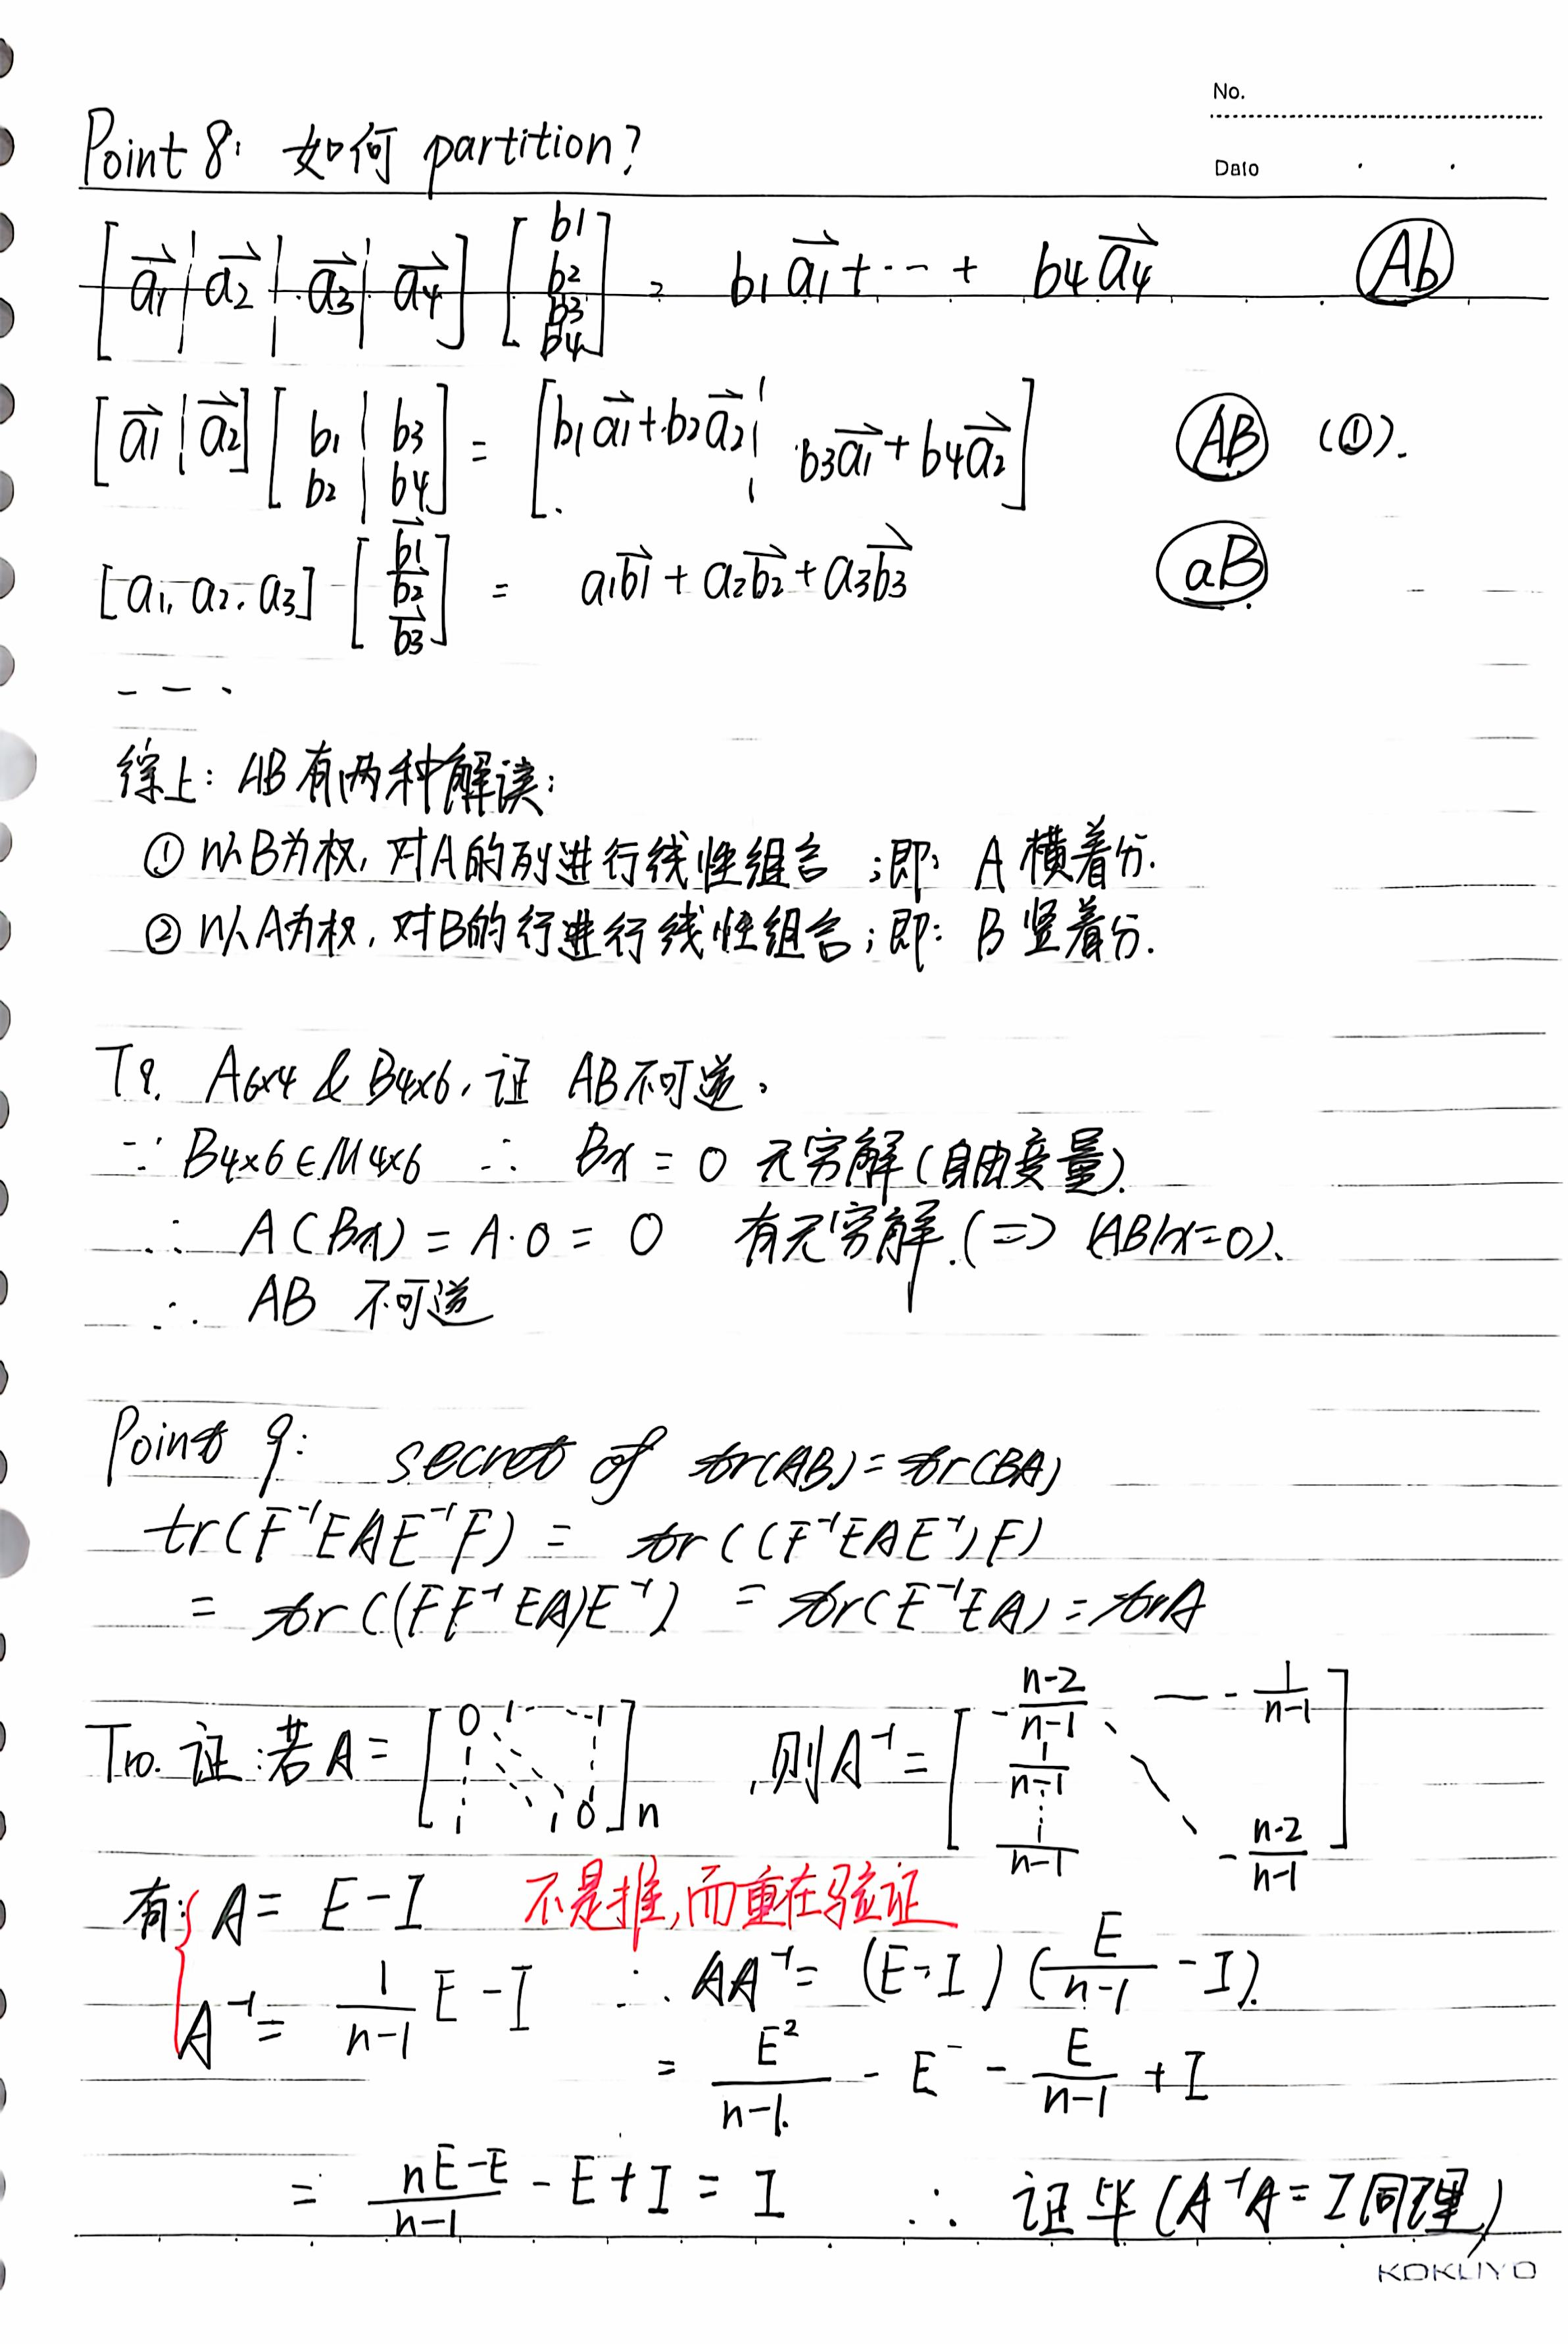 No.
Date
Point 8: 如何 partition?
[a⃗1 | a⃗2 | a⃗3 | a⃗4] [b1 b2 b3 b4] = b1a⃗1 + ... + b4a⃗4 Ab
[a⃗1 | a⃗2] [b1 b2 | b3 b4] = [b1a⃗1 + b2a⃗2 | b3a⃗1 + b4a⃗2] AB (①).
[a1, a2, a3] [b⃗1 b⃗2 b⃗3] = a1b⃗1 + a2b⃗2 + a3b⃗3 aB
- - -
综上: AB有两种解读:
① 以B为权, 对A的列进行线性组合; 即: A 横着分.
② 以A为权, 对B的行进行线性组合; 即: B 竖着分.
T9. A6x4 & B4x6, 证 AB不可逆.
∵ B4x6 ∈ M4x6 ∴ Bx = 0 无穷解 (自由变量).
∴ A(Bx) = A·0 = 0 有无穷解. (=> (AB)x=0).
∴ AB 不可逆
Point 9: secret of tr(AB) = tr(BA)
tr(F⁻¹EAE⁻¹F) = tr((F⁻¹EAE⁻¹)F)
= tr((FF⁻¹EA)E⁻¹) = tr(E⁻¹EA) = trA
T10. 证: 若A = [0 1 --- 1 1 ⋮ 1 ... 1 0]n , 则A⁻¹ = [-(n-2)/(n-1) — - 1/(n-1) 1/(n-1) ⋮ 1/(n-1) -(n-2)/(n-1)]
有: { A = E - I 不是推, 而重在验证
A⁻¹ = 1/(n-1) E - I ∴ AA⁻¹ = (E-I)(E/(n-1) - I).
= E²/(n-1) - E - E/(n-1) + I
= (nE-E)/(n-1) - E + I = I ∴ 证毕 (A⁻¹A = I 同理)
KOKUYO